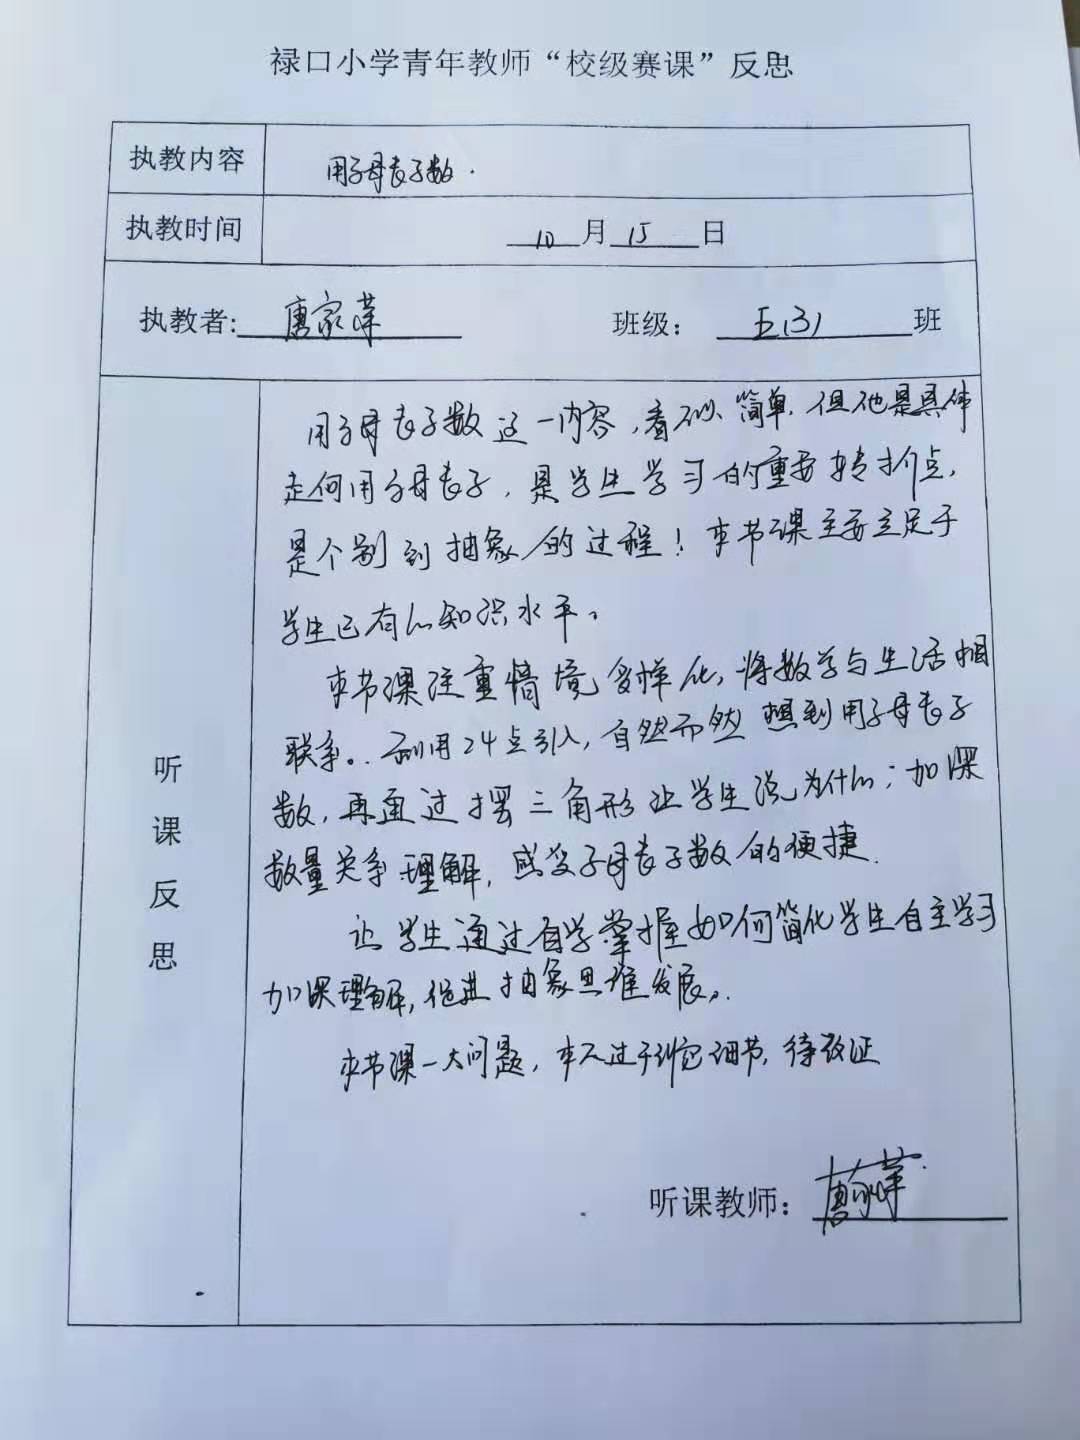 禄口小学青年教师“校级赛课”反思
执教内容 用字母表示数.
执教时间 10月15日
执教者: 唐家萍 班级: 五(3) 班
用字母表示数这一内容,看似简单,但他是具体
走向用字母表示,是学生学习的重要转折点,
是个别到抽象的过程!本节课主要立足于
学生已有的知识水平。
本节课注重情境多样化,将数学与生活相
联系。利用24点引入,自然而然想到用字母表示
数,再通过摆三角形让学生说为什么;加深
数量关系理解,感受字母表示数的便捷.
让学生通过自学掌握如何简化学生自主学习
加深理解,促进抽象思维发展。
本节课一大问题,本人过于细节,待改正
听课反思
听课教师: 唐家萍